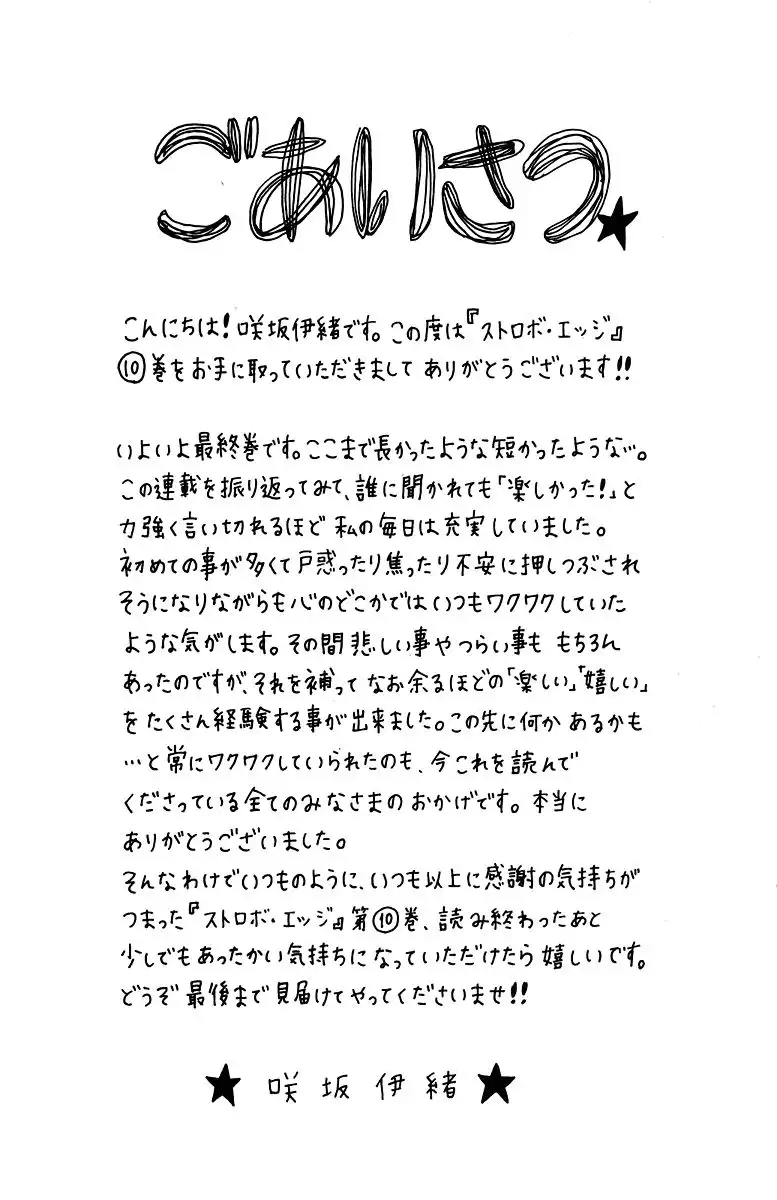 ごあいさつ★
こんにちは!咲坂伊緒です。この度は『ストロボ・エッジ』
⑩巻をお手に取っていただきまして ありがとうございます!!
いよいよ最終巻です。ここまで長かったような短かったような…。
この連載を振り返ってみて、誰に聞かれても「楽しかった!」と
力強く言い切れるほど 私の毎日は充実していました。
初めての事が多くて戸惑ったり焦ったり不安に押しつぶされ
そうになりながらも心のどこかではいつもワクワクしていた
ような気がします。その間悲しい事やつらい事も もちろん
あったのですが、それを補って なお余るほどの「楽しい」「嬉しい」
をたくさん経験する事が出来ました。この先に何かあるかも
…と常にワクワクしていられたのも、今これを読んで
くださっている全てのみなさまのおかげです。本当に
ありがとうございました。
そんなわけでいつものように、いつも以上に感謝の気持ちが
つまった『ストロボ・エッジ』第⑩巻、読み終わったあと
少しでもあったかい気持ちになっていただけたら嬉しいです。
どうぞ最後まで見届けてやってくださいませ!!
★ 咲坂伊緒 ★